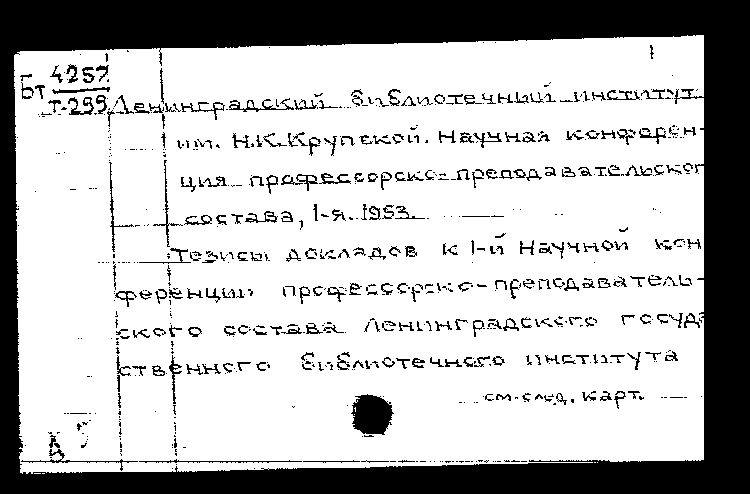 1
Бт 4257
Т-299
Ленинградский библиотечный институт
им. Н.К.Крупской. Научная конферен-
ция профессорско-преподавательског
состава, 1-я. 1953.
Тезисы докладов к 1-й Научной кон
ференции профессорско-преподаватель-
ского состава Ленинградского госуда
ственного библиотечного института
см. след. карт.